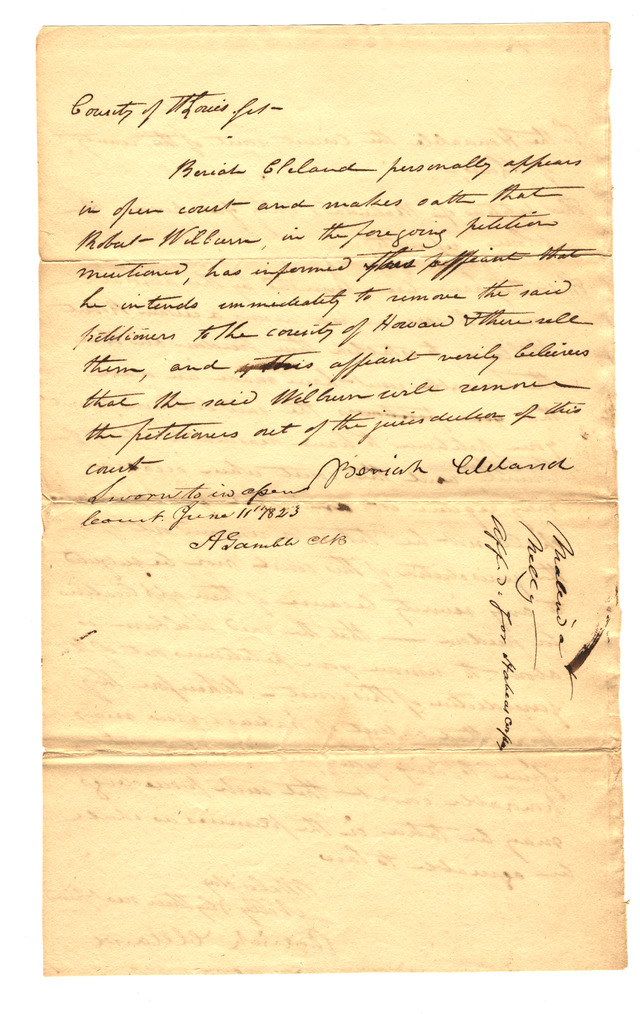 County of St Louis Sct
Beriah Cleland personally appears
in open court and makes oath that
Robert Wilburn, in the foregoing petition
mentioned, has informed this affiant that
he intends immediately to remove the said
petitioners to the county of Howard & there sell
them, and this affiant verily believes
that the said Wilburn will remove
the petitioners out of the jurisdiction of this
court
Beriah Cleland
Sworn to in open
Court June 11th 1823
A Gamble Clk
Malinda &
Melly
Affid: for Habeas Corpus